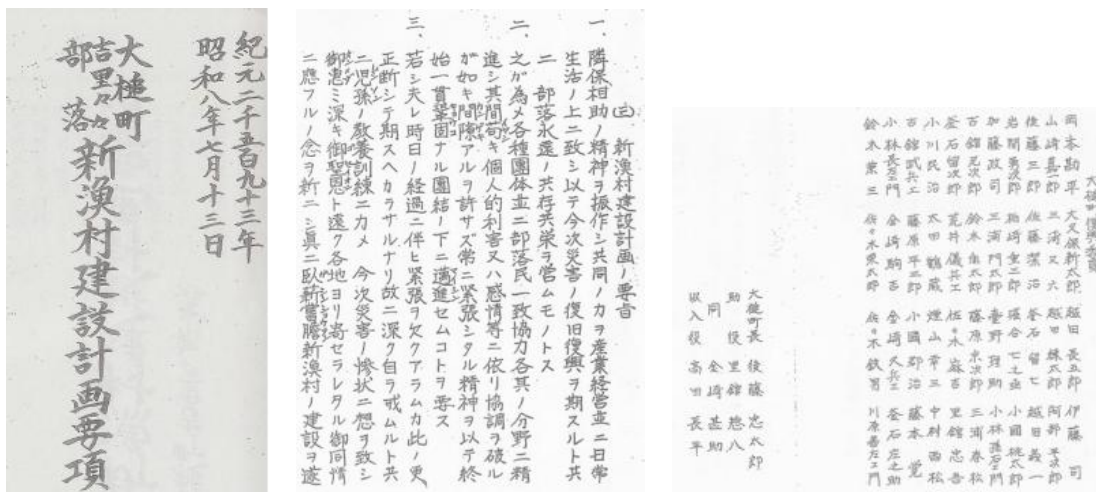 紀元二千五百九十三年
昭和八年七月十三日
大槌町
吉里々々
部落
新漁村建設計画要項
(三) 新漁村建設計画ノ要旨
一、隣保相助ノ精神ヲ振作シ共同ノ力ヲ産業経営並ニ日常
生活ノ上ニ致シ以テ今次災害ノ復旧復興ヲ期スルト共
ニ 部落永遠ノ共存共栄ヲ営ムモノトス
二、之ガ為メ各種團体並ニ部落民一致協力各其ノ分野ニ精
進シ其間苟モ個人的利害又ハ感情等ニ依リ協調ヲ破ル
が如キ間隙アルヲ許サズ常ニ緊張シタル精神ヲ以テ終
始一貫鞏固ナル團結ノ下ニ邁進セムコトヲ要ス
三、若シ夫レ時日ノ経過ニ伴ヒ緊張ヲ欠クアラムカ比ノ更
正断シテ期スヘカラサルナリ故ニ深ク自ラ戒ムルト共
ニ児孫ノ教養訓練ニカメ 今次災害ノ惨状ニ想ヲ致シ
御恵ミ深キ御聖恩ト遠ク各地ヨリ寄セラレタル御同情
ニ應フルノ念ヲ新ニシ真ニ臥薪嘗膽新漁村ノ建設ヲ遂
大槌町復興委員
岡本勘平 大久保新太郎 越田長五郎 伊藤 司
山崎嘉二郎 三浦又六 越田林太郎 阿部平次郎
後藤三郎 佐藤潔治 釜石留七 越田義一
岩間勇次郎 柏崎重二郎 小國桃太郎
加藤政司 三浦門太郎 小林孫右エ門
古舘兄次郎 鈴木 藤原末次郎 三浦春松
釜石留次郎 荒井儀兵エ 佐々木麻吉 里舘忠吾
小川民治 太田鶴蔵 煙山幸三 中村西松
古舘武兵エ 藤原平三郎 小國郡治 藤本 覚
小林長左エ門 金崎駒吉 金崎久兵エ 釜石庄之助
鈴木兼三 佐々木栗太郎 佐々木鉄男 川原善左エ門
大槌町長 後藤忠太郎
助役 里舘惣八
同 金崎甚助
収入役 高田長平